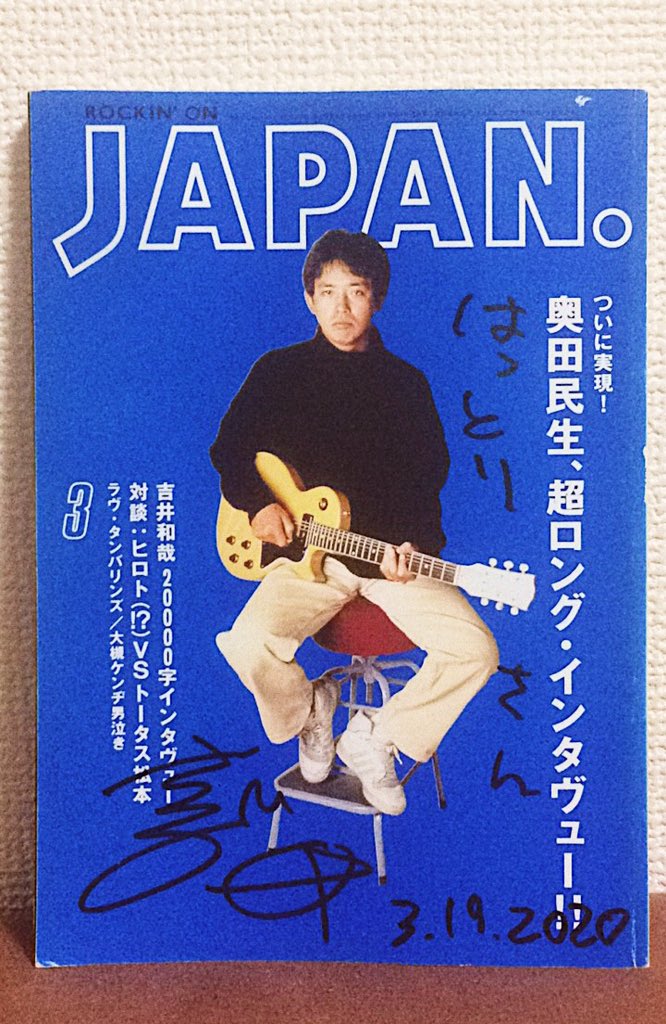 ROCKIN' ON
JAPAN.
ついに実現！
奥田民生、超ロング・インタヴュー!!
3
吉井和哉 20000字インタヴュー
対談：ヒロト(!?)VSトータス松本
ラヴ・タンバリンズ／大槻ケンヂ男泣き
はっとり さん
3.19.2020